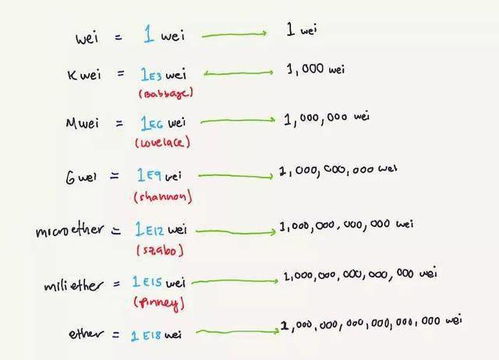 wei = 1 wei → 1 wei
Kwei = 1E3 wei ↔ 1,000 wei
(Babbage)
Mwei = 1E6 wei → 1,000,000 wei
(lovelace)
Gwei = 1E9 wei → 1,000,000,000 wei
(shannon)
microether = 1E12 wei → 1,000,000,000,000 wei
(szabo)
miliether = 1E15 wei → 1,000,000,000,000,000 wei
(finney)
ether = 1E18 wei → 1,000,000,000,000,000,000 wei